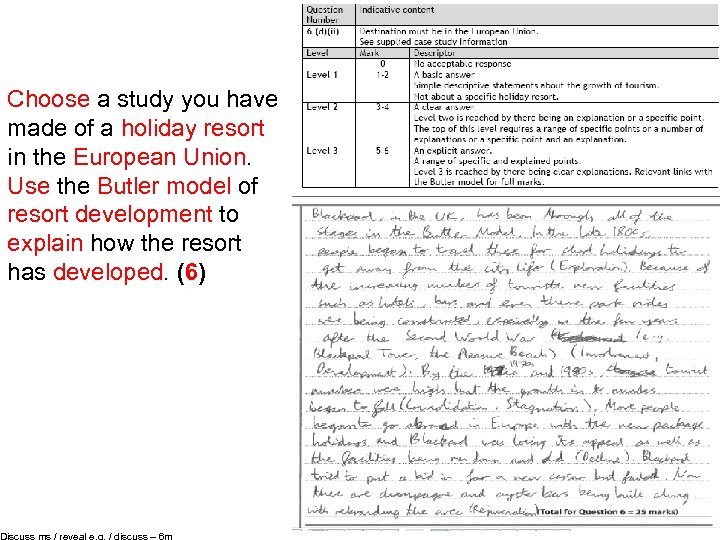 Choose a study you have
made of a holiday resort
in the European Union.
Use the Butler model of
resort development to
explain how the resort
has developed. (6)
Question Number Indicative content
6 (d)(ii) Destination must be in the European Union.
See supplied case study information
Level Mark Descriptor
0 No acceptable response
Level 1 1-2 A basic answer
Simple descriptive statements about the growth of tourism.
Not about a specific holiday resort.
Level 2 3-4 A clear answer
Level two is reached by there being an explanation or a specific point.
The top of this level requires a range of specific points or a number of
explanations or a specific point and an explanation.
Level 3 5-6 An explicit answer.
A range of specific and explained points.
Level 3 is reached by there being clear explanations. Relevant links with
the Butler model for full marks.
Blackpool, in the UK, has been through all of the
stages in the Butler Model. In the late 1800s,
people began to travel there for short holidays to
get away from the city life (Exploration). Because of
the increasing number of tourists, new facilities
such as hotels, bars and even theme park rides
were being constructed, especially in the few years
after the Second World War (e.g.
Blackpool Tower, the Pleasure Beach) (Involvement,
Development). By the 1970s and 1980s, tourist
numbers were high but the growth in numbers
began to fall (Consolidation, Stagnation). Most people
began to go abroad in Europe with the new package
holidays and Blackpool was losing its appeal as well as
the facilities being run down and old (Decline). Blackpool
tried to put a bid in for a new casino but failed. Now
there are champagne and oyster bars being built along
with rebranding the area (Rejuvenation)
(Total for Question 6 = 25 marks)
Discuss ms / reveal e.g. / discuss – 6m